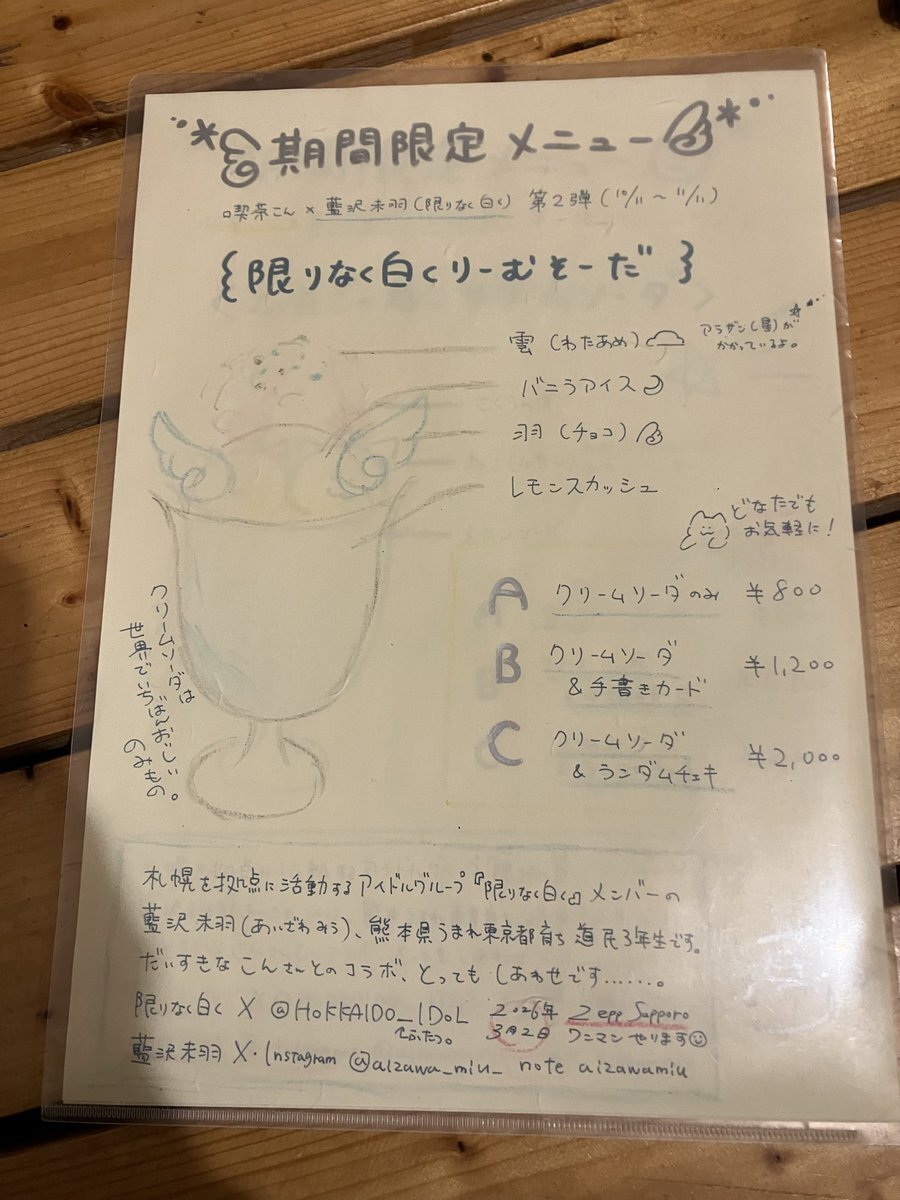 期間限定メニュー
喫茶こん × 藍沢未羽(限りなく白く) 第2弾(10/11〜11/11)
{限りなく白くりーむそーだ}
雲(わたあめ)
アラザン(星)が
かかっているよ。
バニラアイス
羽(チョコ)
レモンスカッシュ
どなたでも
お気軽に!
A クリームソーダのみ ¥800
B クリームソーダ
&手書きカード ¥1,200
C クリームソーダ
&ランダムチェキ ¥2,000
クリームソーダは
世界でいちばんおいしい
のみもの。
札幌を拠点に活動するアイドルグループ『限りなく白く』メンバーの
藍沢未羽(あいざわみう)、熊本県うまれ東京都育ち道民3年生です。
だいすきなこんさんとのコラボ、とってもしあわせです……。
限りなく白く X @HOKKAIDO__IDOL
↑ふたつ。
2026年
3月2日
Zepp Sapporo
ワンマンやります
藍沢未羽 X・Instagram @aizawa_miu_ note aizawamiu